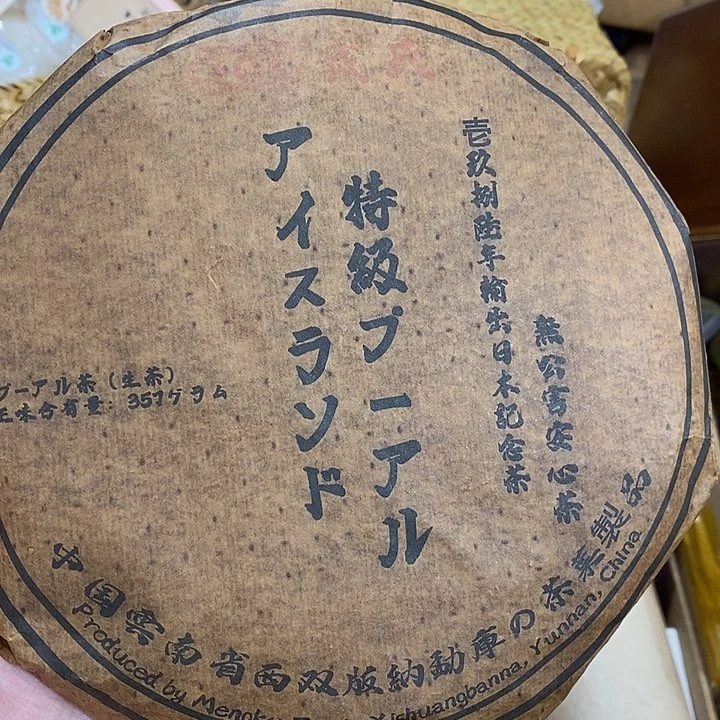 無公害安心茶
壱玖捌陸年輸出日本記念茶
特級プーアル
アイスランド
プーアル茶（生茶）
正味含有量：357グラム
中国雲南省西双版納勐庫の茶葉製品
Produced by Xishuangbanna, Yunnan, China